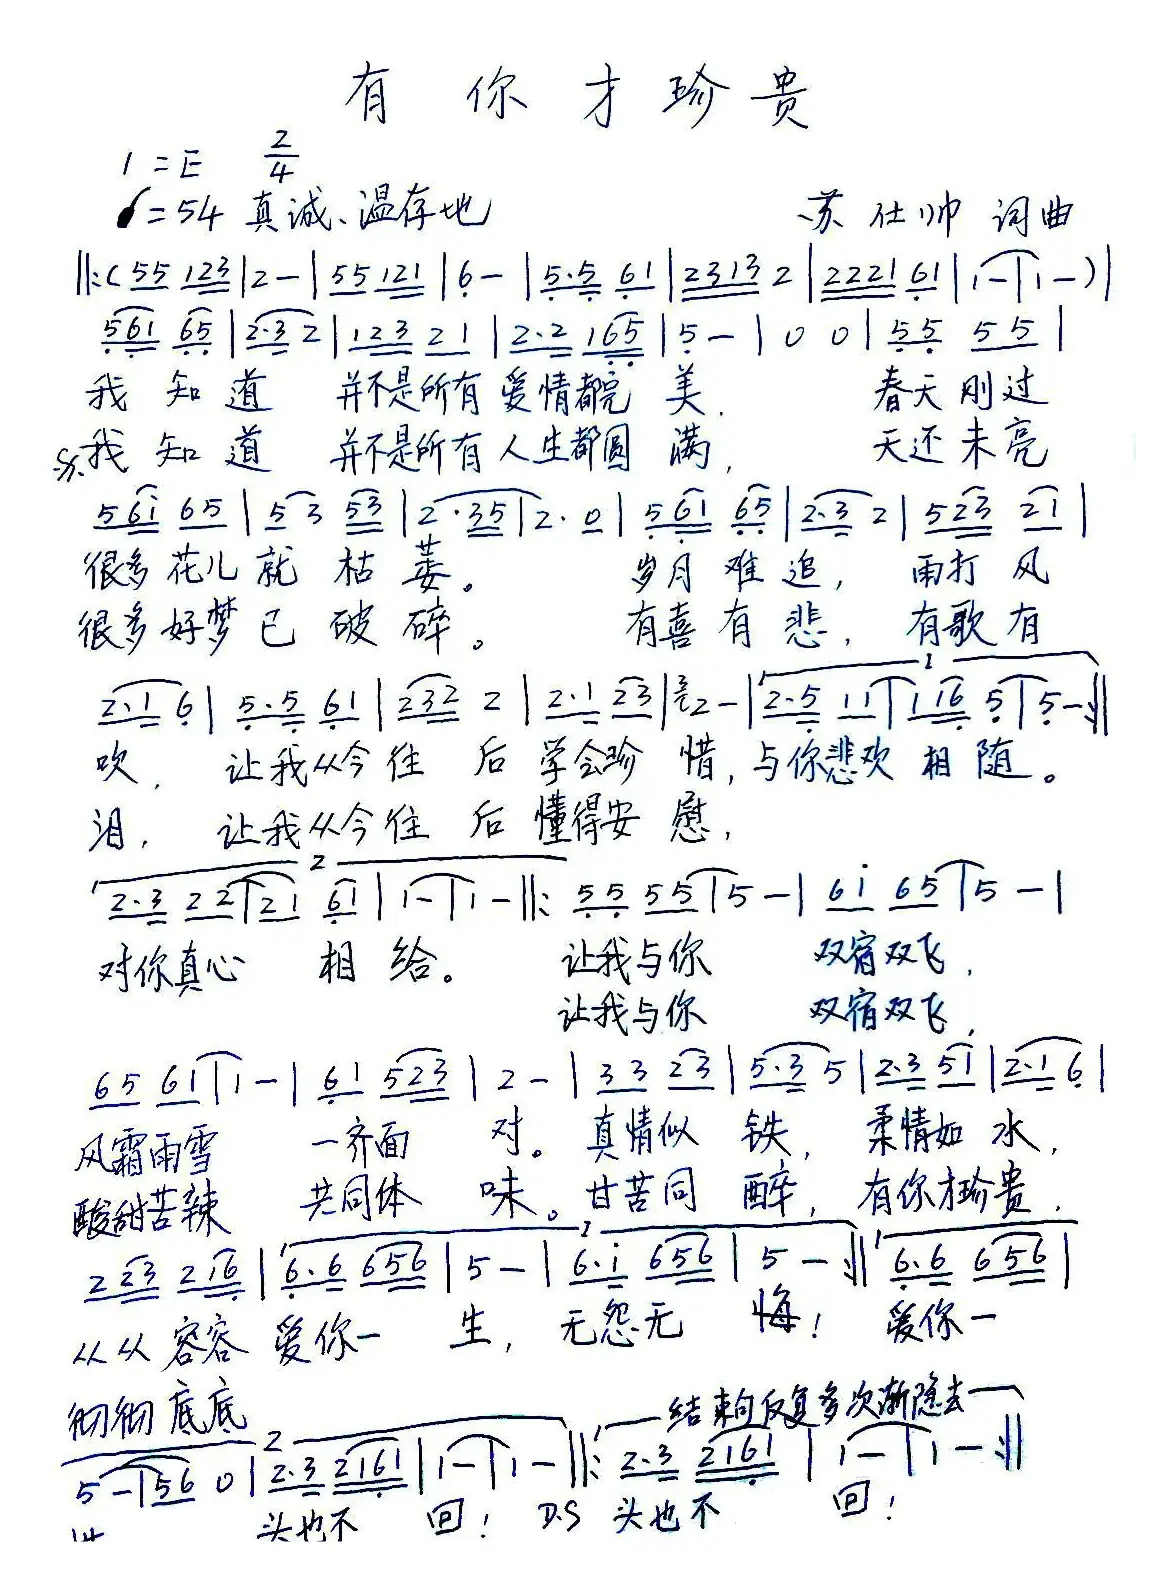 有你才珍贵
1=E 2/4
♩=54 真诚、温存地 苏仕帅 词曲
‖:(55 123|2-|55 121|6-|5·5 61|2313 2|2221 61|1-|1-)|
561 65|2·3 2|123 21|2·2 165|5-|0 0|55 55|
我知道 并不是所有爱情都完美. 春天刚过
我知道 并不是所有人生都圆满, 天还未亮
561 65|53 53|2·35|2·0|561 65|2·3 2|523 21|
很多花儿就枯萎。 岁月难追, 雨打风
很多好梦已破碎。 有喜有悲, 有歌有
1
2·1 6|5·5 61|232 2|2·1 23|3 2-|2·5 11|116 5|5-:‖
吹, 让我从今往后学会珍惜,与你悲欢相随。
泪, 让我从今往后懂得安慰,
2
2·3 22|21 61|1-|1-‖:55 55|5-|61 65|5-|
对你真心相给。 让我与你 双宿双飞,
让我与你 双宿双飞,
65 61|1-|61 523|2-|33 23|5·3 5|2·3 51|2·1 6|
风霜雨雪 一齐面对。真情似铁, 柔情如水,
酸甜苦辣 共同体味。甘苦同醉, 有你才珍贵.
1
223 216|6·6 656|5-|6·1 656|5-:‖6·6 656|
从从容容爱你一生, 无怨无悔! 爱你一
彻彻底底
结束句反复多次渐隐去
2
5-|56 0|2·3 2161|1-|1-‖:2·3 2161|1-|1-:‖
头也不回! D.S 头也不回!